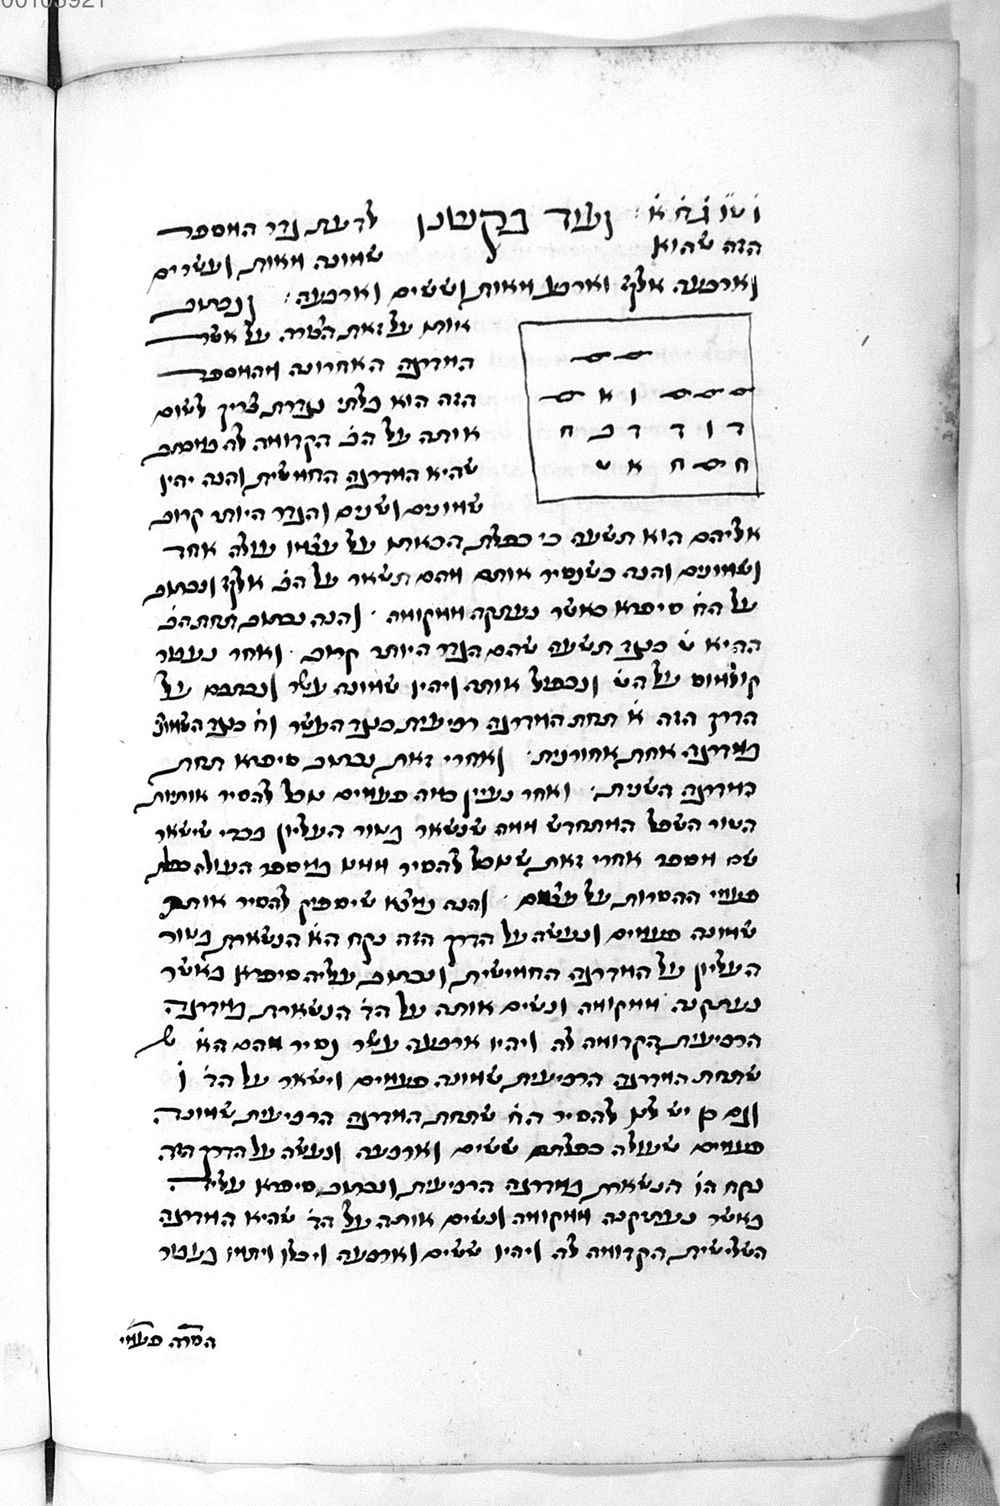 00103921
ו ט ו ג ח א : ועוד בקשנו לדעת גדר המספר
הזה שהוא שמונה מאות ועשרים
וארבעה אלף וארבע מאות וששים וארבעה : ונכתוב
אותו על זאת הצורה על אשר
המדרגה האחרונה מהמספר
הזה הוא בלתי נגדרת צריך לשום
אותה על הב הקדומה לה במכתב
שהיא המדרגה החמישית והנה יהיו
שמונים ושנים והגדר היותר קרוב
ס ס
ס ס ס ו א ס
ד ו ד ד ב ח
ח ס ח א ט
אליהם הוא תשעה כי כפלת הכאתו על עצמו עולה אחד
ושמונים והנה כשנסיר אותם מהם תשאר על הב אלף ונכתוב
על הח סיפרא כאשר נעתקה ממקומה · והנה נכתוב תחת הב
ההיא ט כנגד תשעה שהם הגדר היותר קרוב · ואחר נעביר
קולמוס על הט ונכפול אותה ויהיו שמונה עשר ונכתבם על
הדרך הזה א תחת המדרגה רביעית כנגד העשר וח כנגד השמונ
במדרגה אחת אחורנית · ואחרי זאת נכתוב סיפרא תחת
המדרגה השנית · ואחר נעיין כמה פעמים נוכל להסיר אותיות
הטור השפל המתחדש ממה שנשאר בטור העליון בכדי שישאר
שם מספר אחרי זאת שנוכל להסיר ממנו במספר העולה מכפלת
פעמי ההסרות על עצמם · והנה נמצא שיספיק להסיר אותם
שמונה פעמים ונעשה על הדרך הזה נקח הא הנשארת בטור
העליון על המדרגה החמישית ונכתוב עליה סיפרא כאשר
נעתקנה ממקומה ונשים אותה על הד הנשארת במדרגה
הרביעית הקדומה לה ויהיו ארבעה עשר נסיר מהם הא ש
שתחת המדרגה הרביעית שמונה פעמים וישאר על הד ו
וגם כן יש לנו להסיר הח שתחת המדרגה הרביעית שמונה
פעמים שעולה כפלתם ששים וארבעה ונעשה על הדרך הזה
נקח הו הנשארת במדרגה הרביעית ונכתוב סיפרא עליה
כאשר נעתקנה ממקומה ונשים אותה על הד שהיא המדרגה
השלישית הקדומה לה ויהיו ששים וארבעה ויכלו ויתמו בעבור
הסרה פעמי